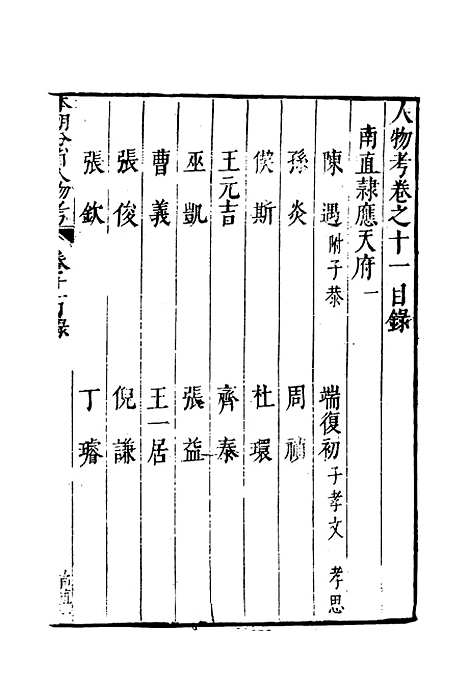 人物考卷之十一目錄
南直隸應天府一
陳遇附子恭 端復初子孝文 孝思
孫炎 周禎
偰斯 杜環
王元吉 齊泰
巫凱 張益
曹義 王一居
張俊 倪謙
張欽 丁璿
本朝分省人物考 卷之十一目錄